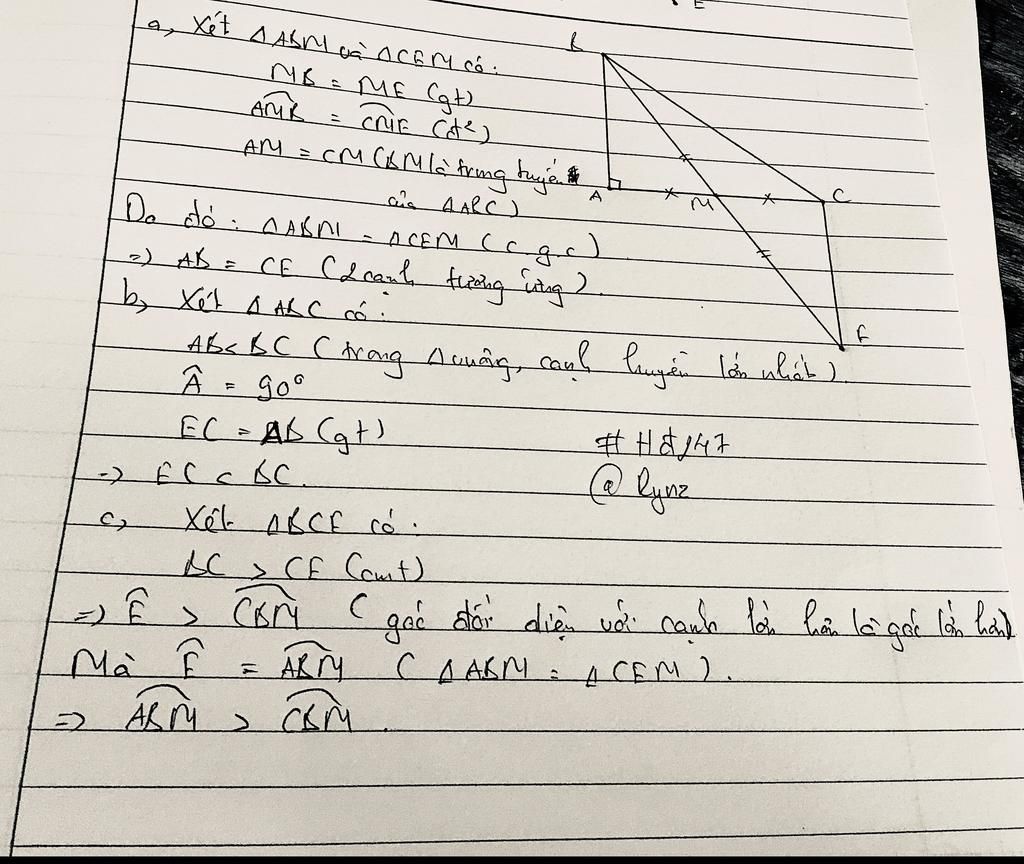 E
a, Xét ΔABM và ΔCEM có:
MB = ME (gt)
AMB = CME (đ²)
AM = CM (BM là trung tuyến
của ΔABC)
Do đó: ΔABM = ΔCEM (c.g.c)
=) AB = CE (2 cạnh tương ứng).
b, Xét ΔABC có:
AB < BC (trong Δvuông, cạnh huyền lớn nhất)
Â = 90°
EC = AB (gt)
-) EC < BC.
c, Xét ΔBCE có:
BC > CE (cmt)
=) Ê > CBM (góc đối diện với cạnh lớn hơn là góc lớn hơn)
Mà Ê = ABM (ΔABM = ΔCEM).
=) ABM > CBM.
B
A
M
C
E
@ Rynz